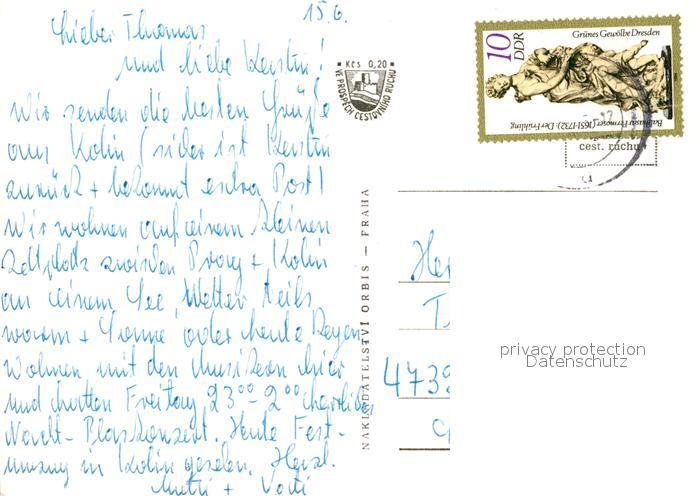 15.6.
Lieber Thomas
und liebe Kerstin!
Wir senden die besten Grüße
aus Kolin (sicher ist Kerstin
zurück + bekommt extra Post)
Wir wohnen auf einem kleinen
Zeltplatz zwischen Prag + Kolin
an einem See, Wetter teils
warm + Sonne, oder heute Regen
Wohnen mit den Musikern hier
und hatten Freitag 23⁰⁰ - 2⁰⁰ herrliches
Nacht-Blaskonzert. Heute Fest-
umzug in Kolin gesehen. Herzl.
Mutti + Vati
Kčs 0,20
VE PROSPĚCH CESTOVNÍHO RUCHU
NAKLADATELSTVÍ ORBIS — PRAHA
10
DDR
Grünes Gewölbe Dresden
Balthasar Permoser (1651-1732): Der Frühling
cest. ruchu
4739
privacy protection
Datenschutz